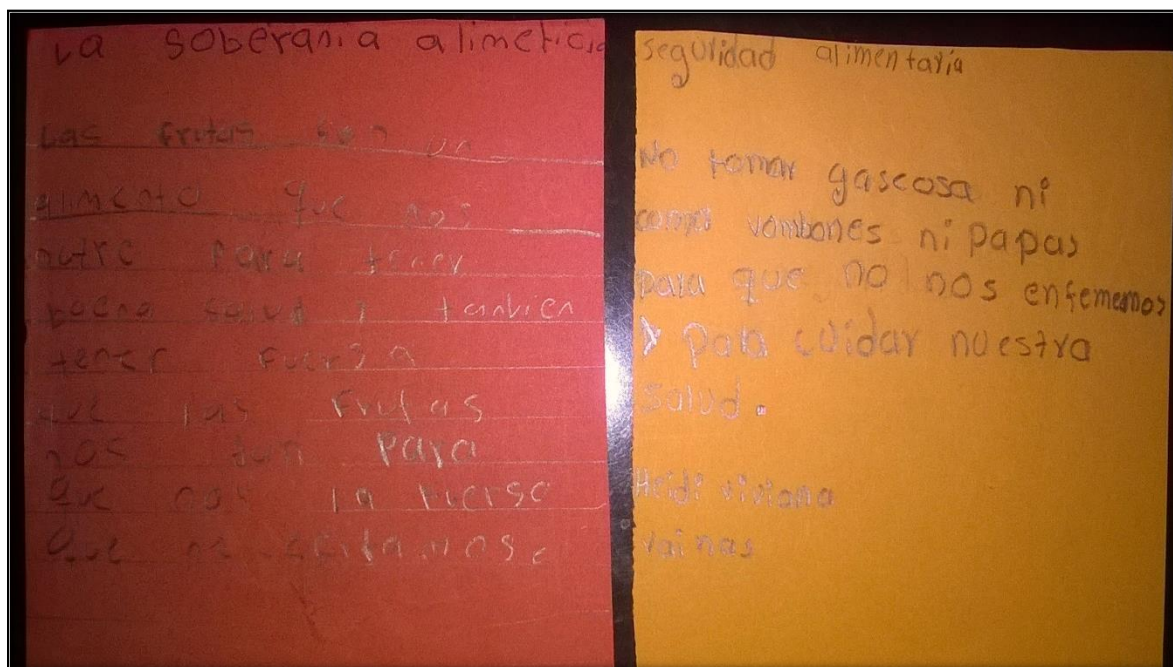 La soberania alimeticia
Las frutas son un
alimento que nos
nutre para tener
buena salud y tanvien
tener fuersa
que las frutas
nos dan para
que nos la fuerse
que
seguridad alimentaria
No tomar gascosa ni
comer vombones ni papas
para que no nos enfememos
y para cuidar nuestra
salud.
Heidi viviana
vainas